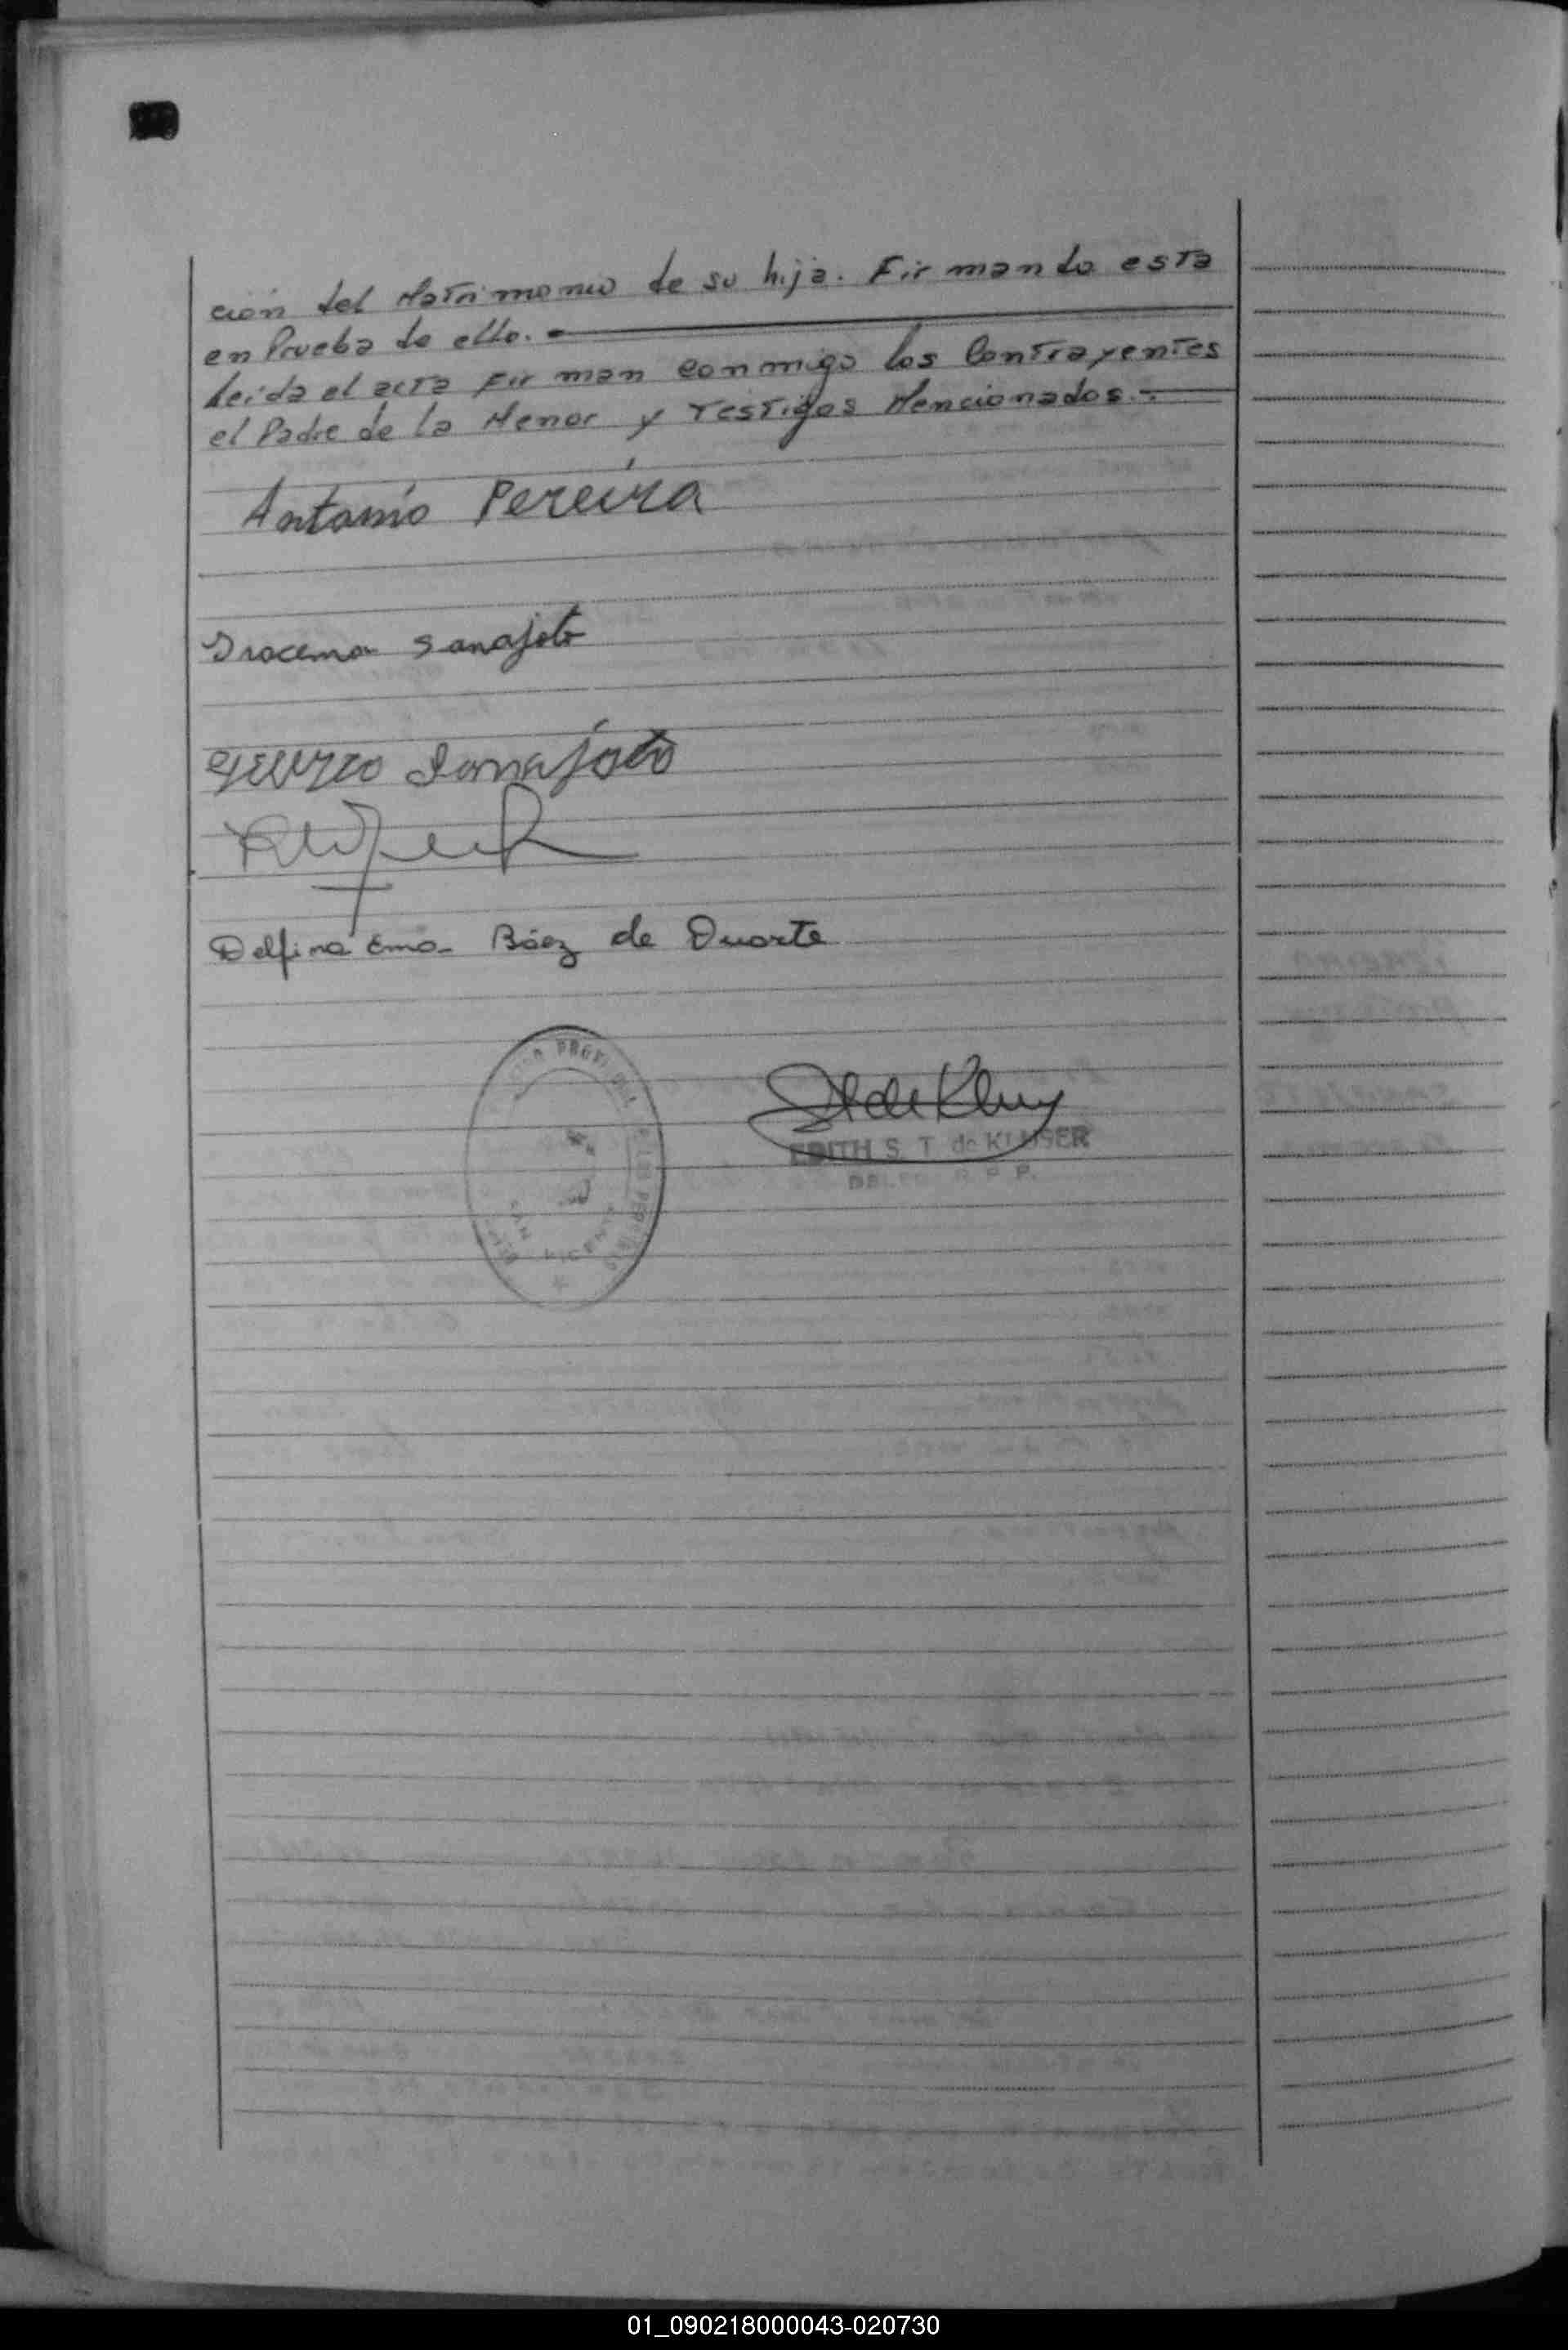 ción del Matrimonio de su hija. Firmando esta
en Prueba de ello.-
Leida el acta Firman conmigo los Contrayentes
el Padre de la Menor y Testigos Mencionados.-
Antonio Pereira
Iracema Sanajoto
Sanajoto
Delfina Ema Báez de Duarte
EDITH S. T. de KLUSER
R. P. P.
SAN VICENTE
01_090218000043-020730